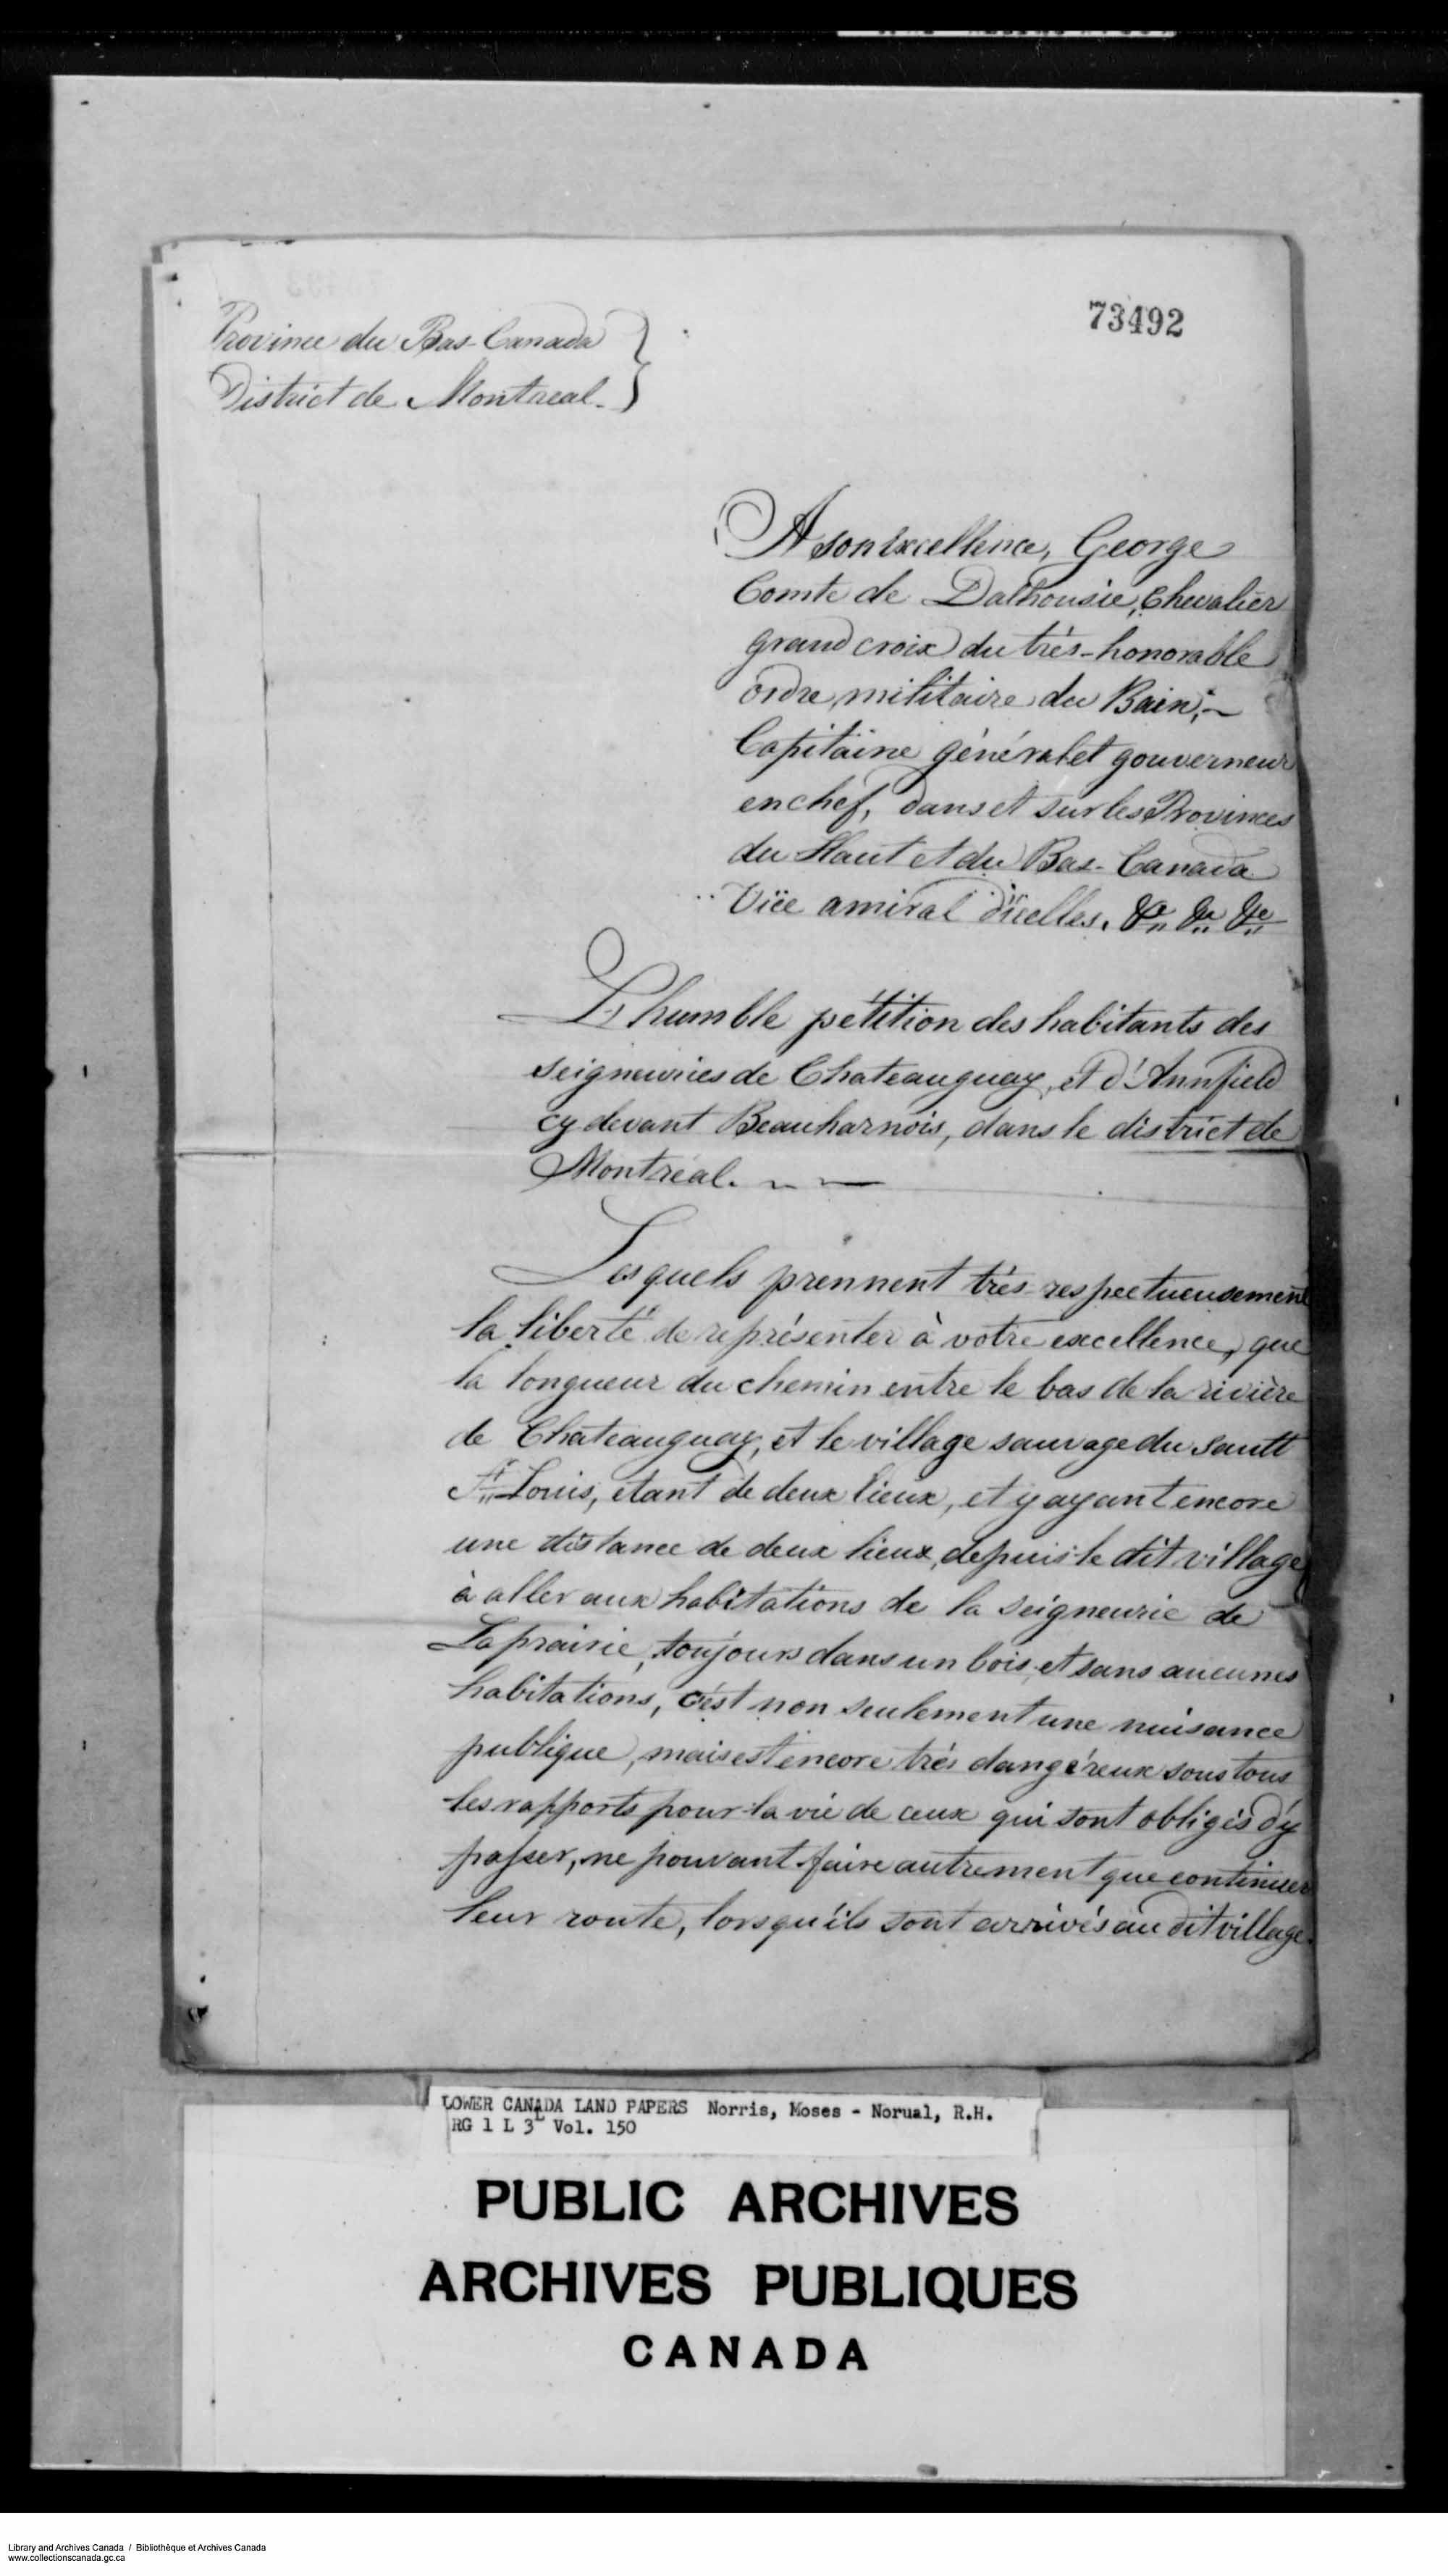 73492
Province du Bas-Canada
District de Montreal.
A son Excellence, George
Comte de Dalhousie, Chevalier
grand croix du très-honorable
ordre militaire du Bain;
Capitaine général et gouverneur
en chef, dans et sur les Provinces
du Haut et du Bas-Canada
Vice amiral d'icelles, &c &c &c
L'humble pétition des habitants des
seigneuries de Chateauguay, et d'Annfield
cy devant Beauharnois, dans le district de
Montréal.
Lesquels prennent très-respectueusement
la liberté de représenter à votre excellence, que
la longueur du chemin entre le bas de la rivière
de Chateauguay, et le village sauvage du Sault
St. Louis, étant de deux lieux, et y ayant encore
une distance de deux lieux, depuis le dit village
à aller aux habitations de la seigneurie de
Laprairie, toujours dans un bois et sans aucunes
habitations, c'est non seulement une nuisance
publique, mais est encore très dangéreux sous tous
les rapports pour la vie de ceux qui sont obligés d'y
passer, ne pouvant faire autrement que continuer
leur route, lorsqu'ils sont arrivés au dit village.
LOWER CANADA LAND PAPERS Norris, Moses - Norual, R.H.
RG 1 L 3L Vol. 150
PUBLIC ARCHIVES
ARCHIVES PUBLIQUES
CANADA
Library and Archives Canada / Bibliothèque et Archives Canada
www.collectionscanada.gc.ca